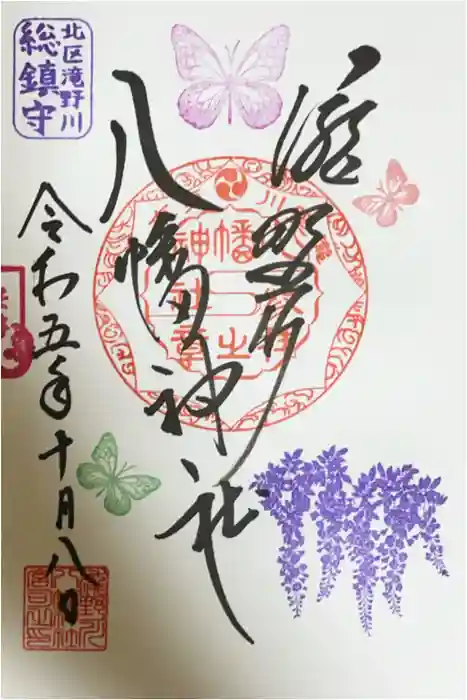 北区滝野川
総鎮守
滝野川
八幡神社
令和五年十月八日